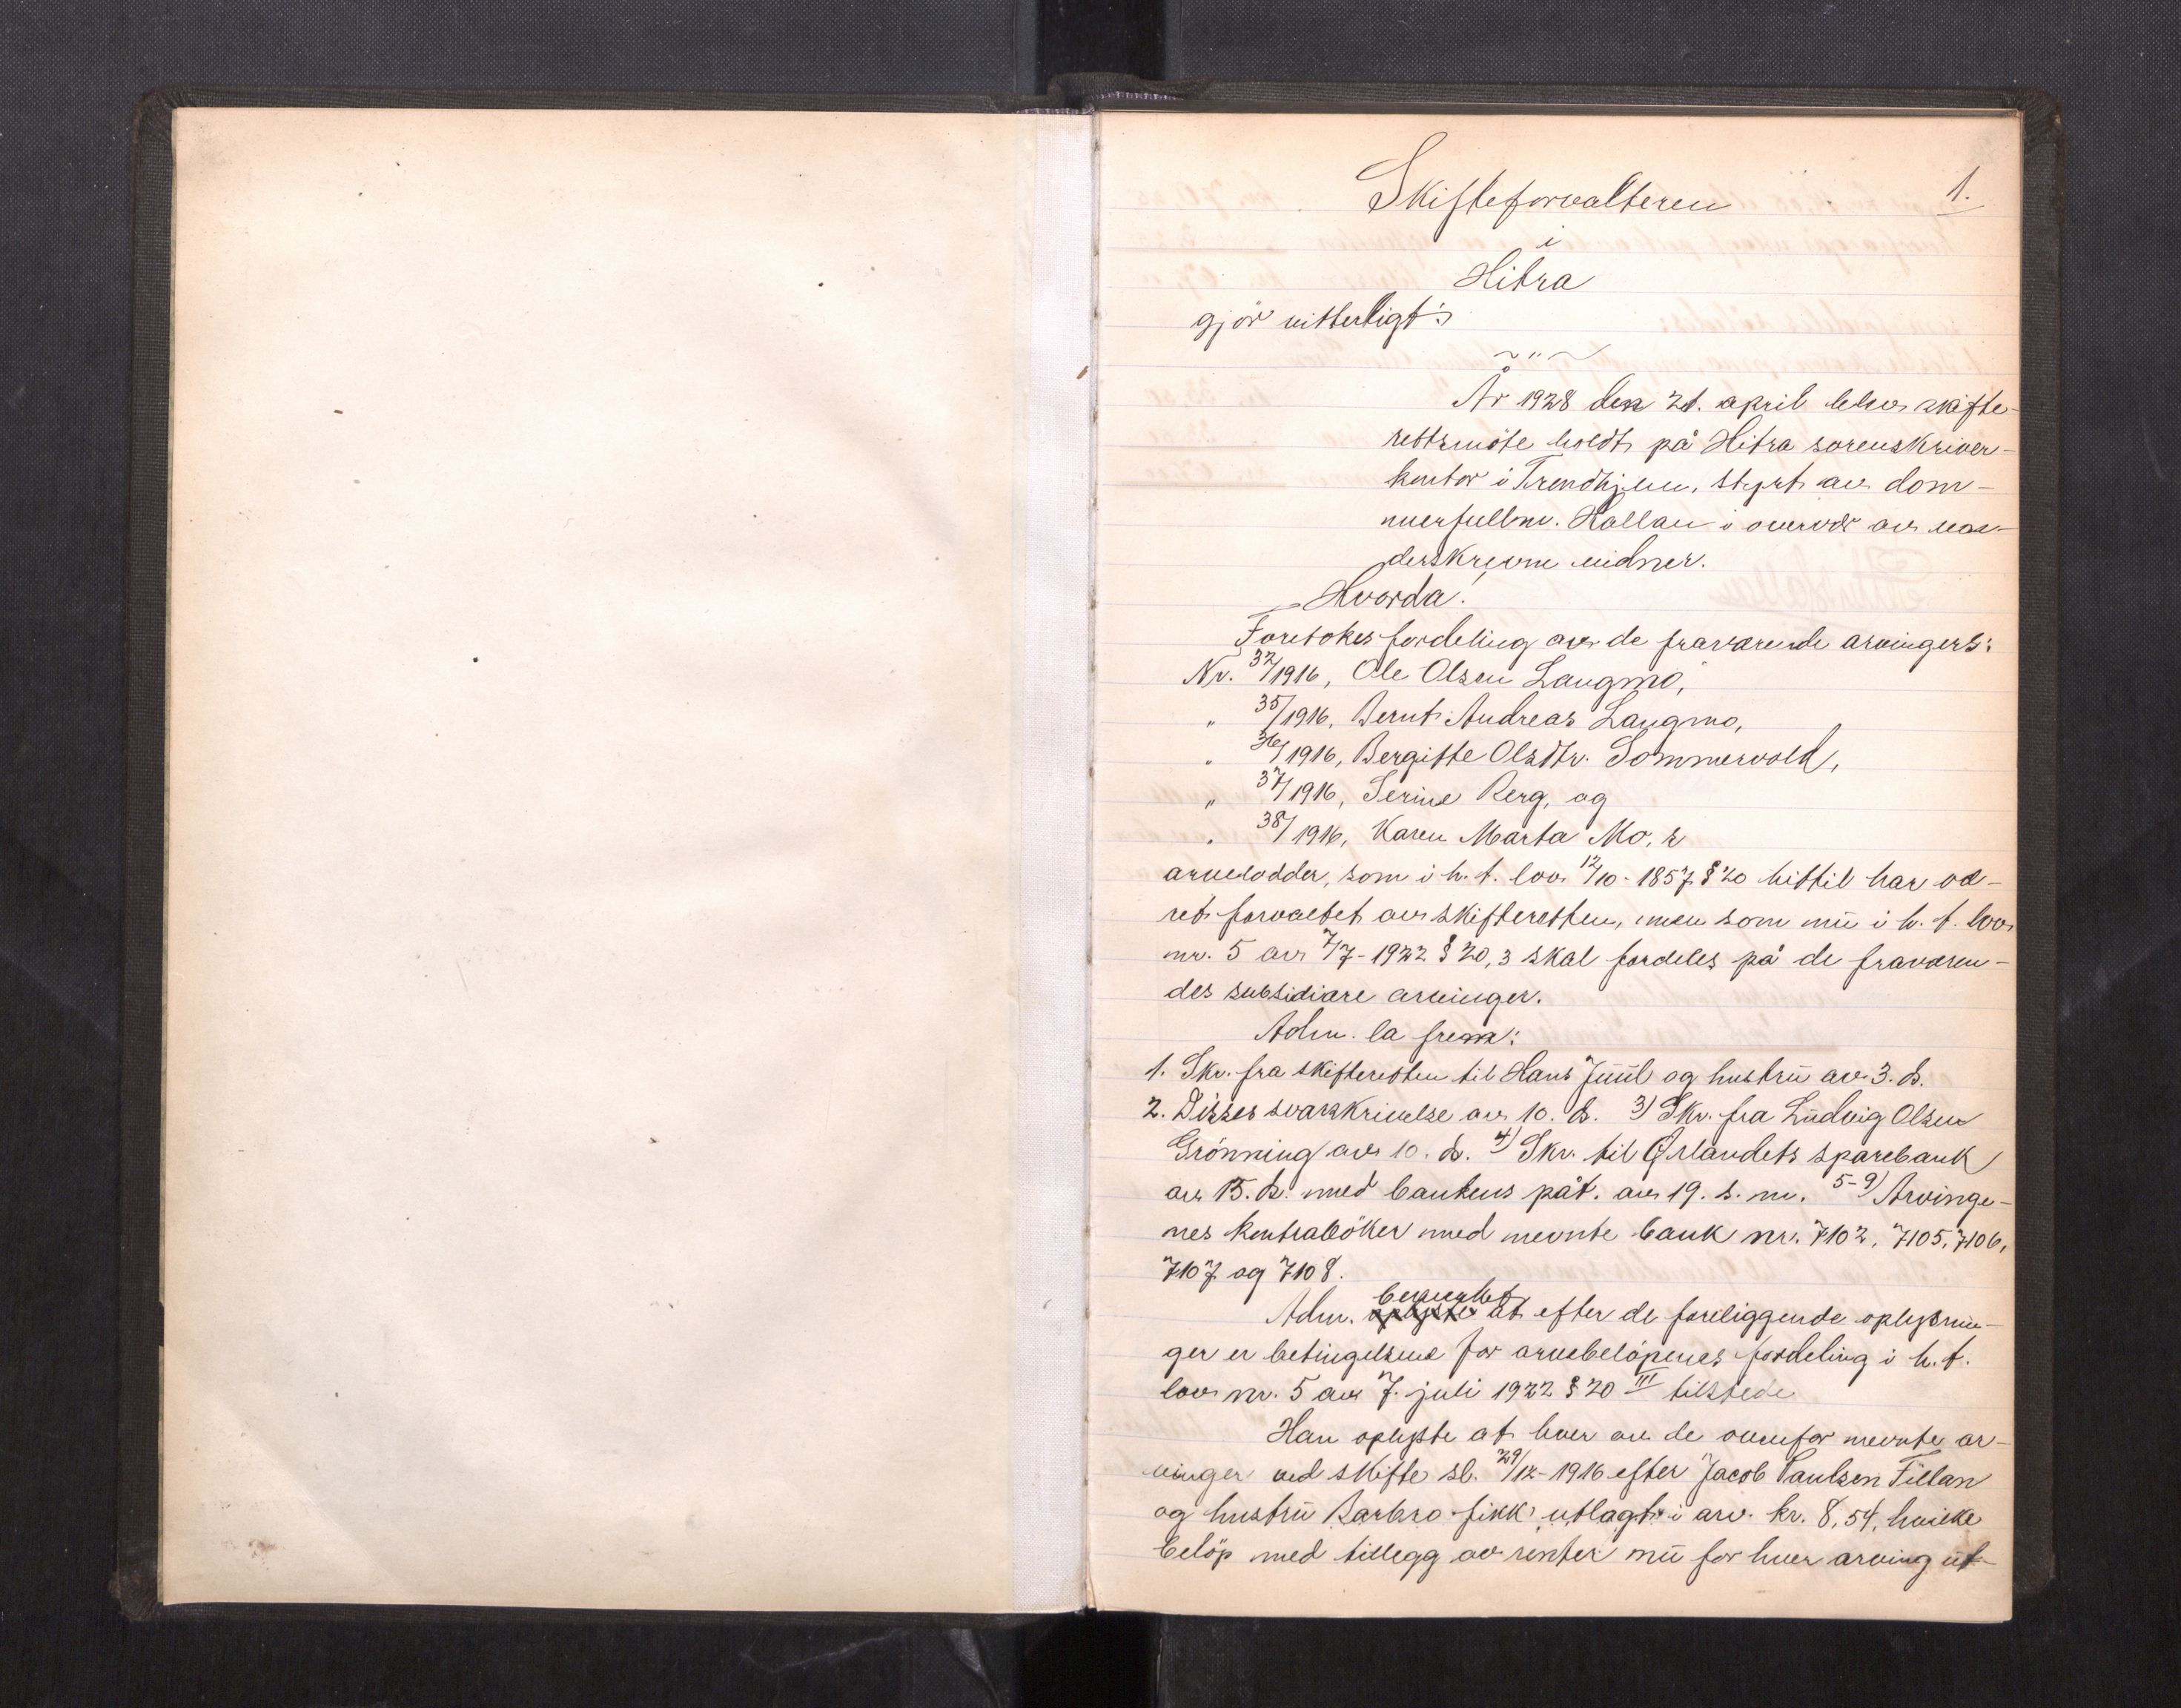 1.
Skifteforvalteren
i
Hitra
gjör vitterligt:
~ " ~
År 1928 den 21. april blev skifte-
rettsmöte holdt på Hitra sorenskriver-
kontor i Trondhjem, styrt av dom-
merfullm. Hallan i overvær av un-
derskrevne vidner.
Hvorda!
Foretokes fordeling av de fraværende arvingers:
Nr. 32/1916, Ole Olsen Langmo,
" 35/1916, Bernt Andreas Langmo,
" 36/1916, Bergitte Olsdtr. Sommervold,
" 37/1916, Serine Berg, og
" 38/1916, Karen Marta Mo, s
arvelodder, som i h. t. lov 12/10-1857 § 20 hittil har væ-
ret forvaltet av skifteretten, men som nu i h. t. lov
nr. 5 av 7/7-1922 § 20,3 skal fordeles på de fraværen-
des subsidiære arvinger.
Adm. la frem:
1. Skr. fra skifteretten til Hans Juul og hustru av 3. ds.
2. Disses svarskrivelse av 10. ds. 3) Skr. fra Ludvig Olsen
Grönning av 10. ds. 4) Skr. til Ørlandets sparebank
av 15. ds. med bankens påt. av 19. s. m. 5-9) Arvinge-
nes kontraböker med nevnte bank nr. 7102, 7105, 7106,
7107 og 7108.
Adm. oplyste bemerket at efter de foreliggende oplysnin-
ger er betingelsene for arvebelöpenes fordeling i h. t.
lov nr. 5 av 7. juli 1922 § 20 III tilstede
Han oplyste at hver av de ovenfor nevnte ar-
vinger ved skifte sl. 29/12-1916 efter Jacob Paulsen Fillan
og hustru Barbro fikk utlagt i arv kr. 8,54, hvilke
belöp med tillegg av renter nu for hver arving ut-